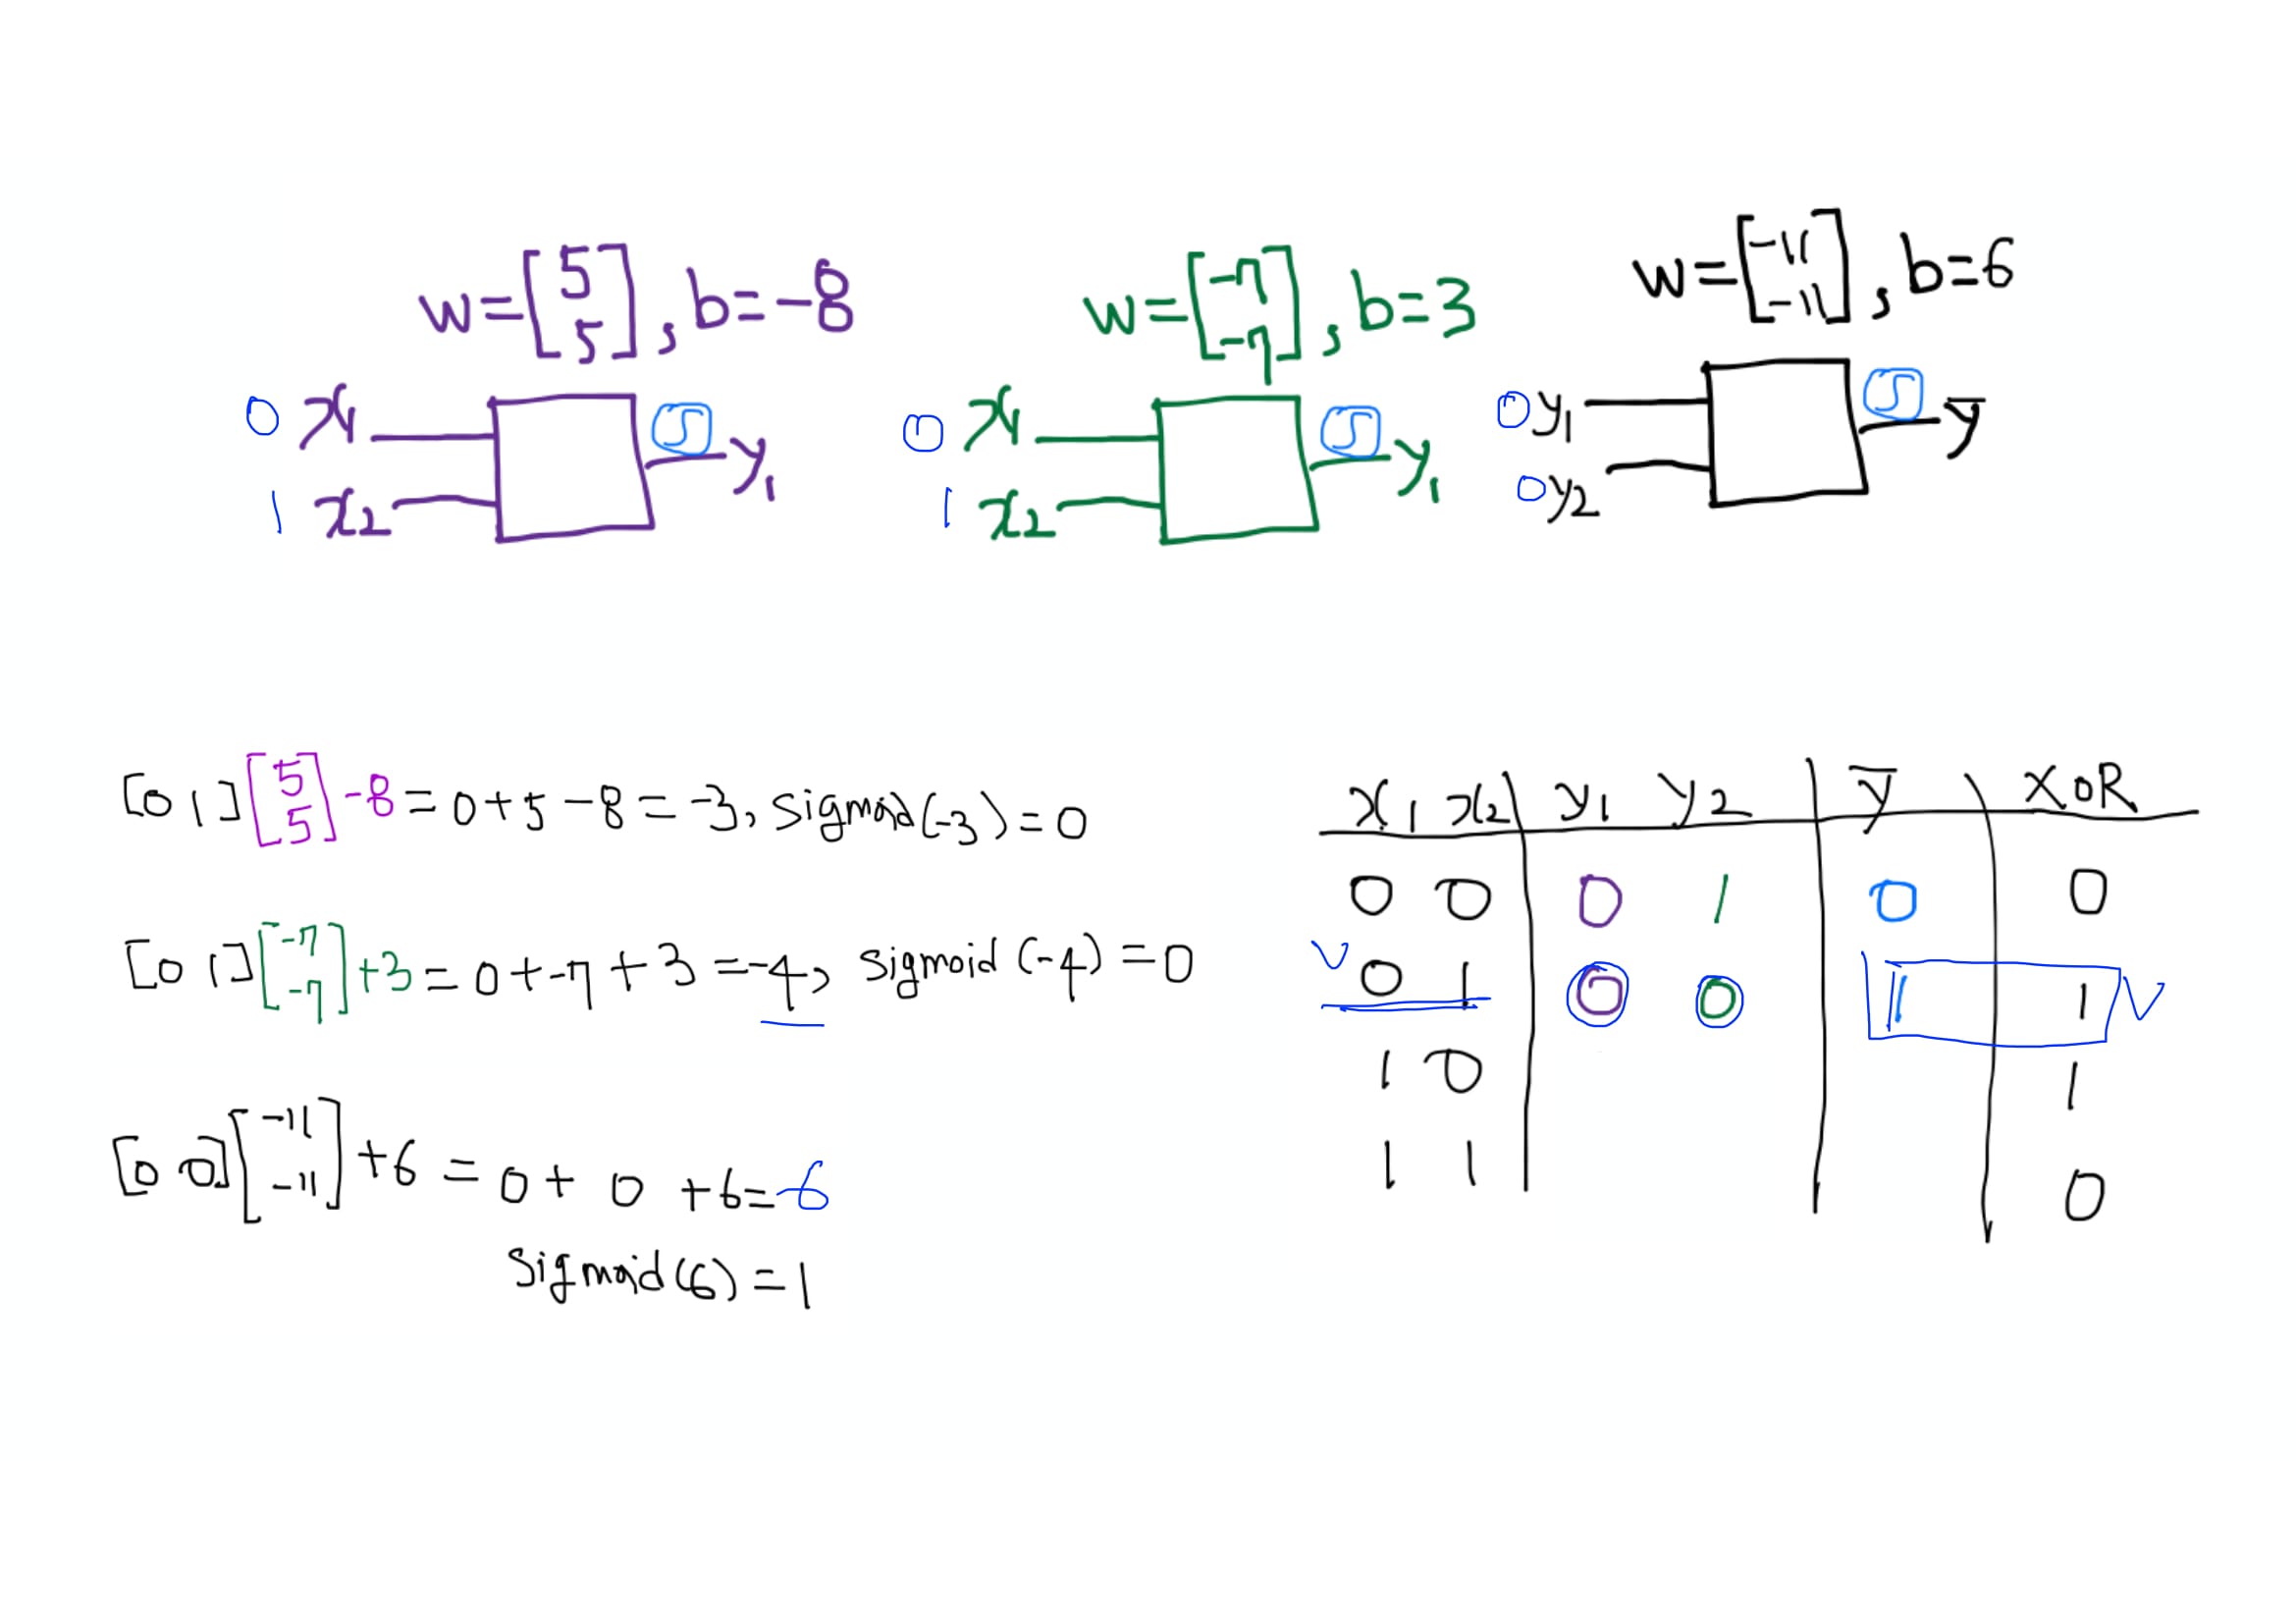 w=[5 5], b=-8
w=[-7 -7], b=3
w=[-11 -11], b=6
0 x1 S y1
1 x2
0 x1 S y1
1 x2
0 y1 S y̅
0 y2
[0 1][5 5]-8=0+5-8=-3, sigmoid(-3)=0
[0 1][-7 -7]+3=0+-7+3=-4, sigmoid(-4)=0
[0 0][-11 -11]+6=0+0+6=6
sigmoid(6)=1
x1 x2 y1 y2 y̅ XOR
0 0 0 1 0 0
V 0 1 0 0 1 1 V
1 0 1
1 1 0